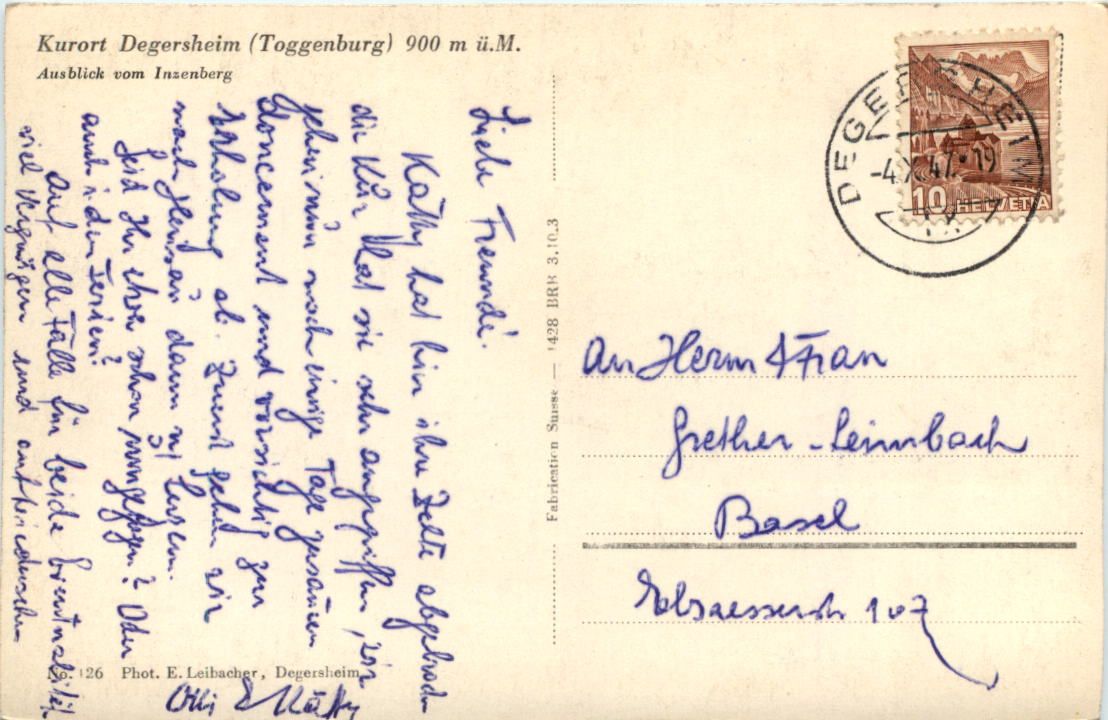 Kurort Degersheim (Toggenburg) 900 m ü.M.
Ausblick vom Inzenberg
Liebe Freunde!
Käthy hat hier ihre Zelte abgebrochen
die Kur hat sie sehr angegriffen, wir
gehen nun noch einige Tage zusammen
und vorsichtig zur
Erholung ab. Zuerst gehen wir
nach dann n/ Luzern.
Seid Ihr schon umgezogen? Oder
auch i. den Ferien?
Auf alle Fälle für beide
viel Vergnügen und auf Wiedersehen
Olli & Käthy
No. 126 Phot. E. Leibacher, Degersheim
Fabrication Suisse — 1428 BRB 3.10.3
DEGERSHEIM
-4.X.47.-19
10 HELVETIA
An Herrn & Frau
Grether-Leimbach
Basel
Elsaesserstr 107